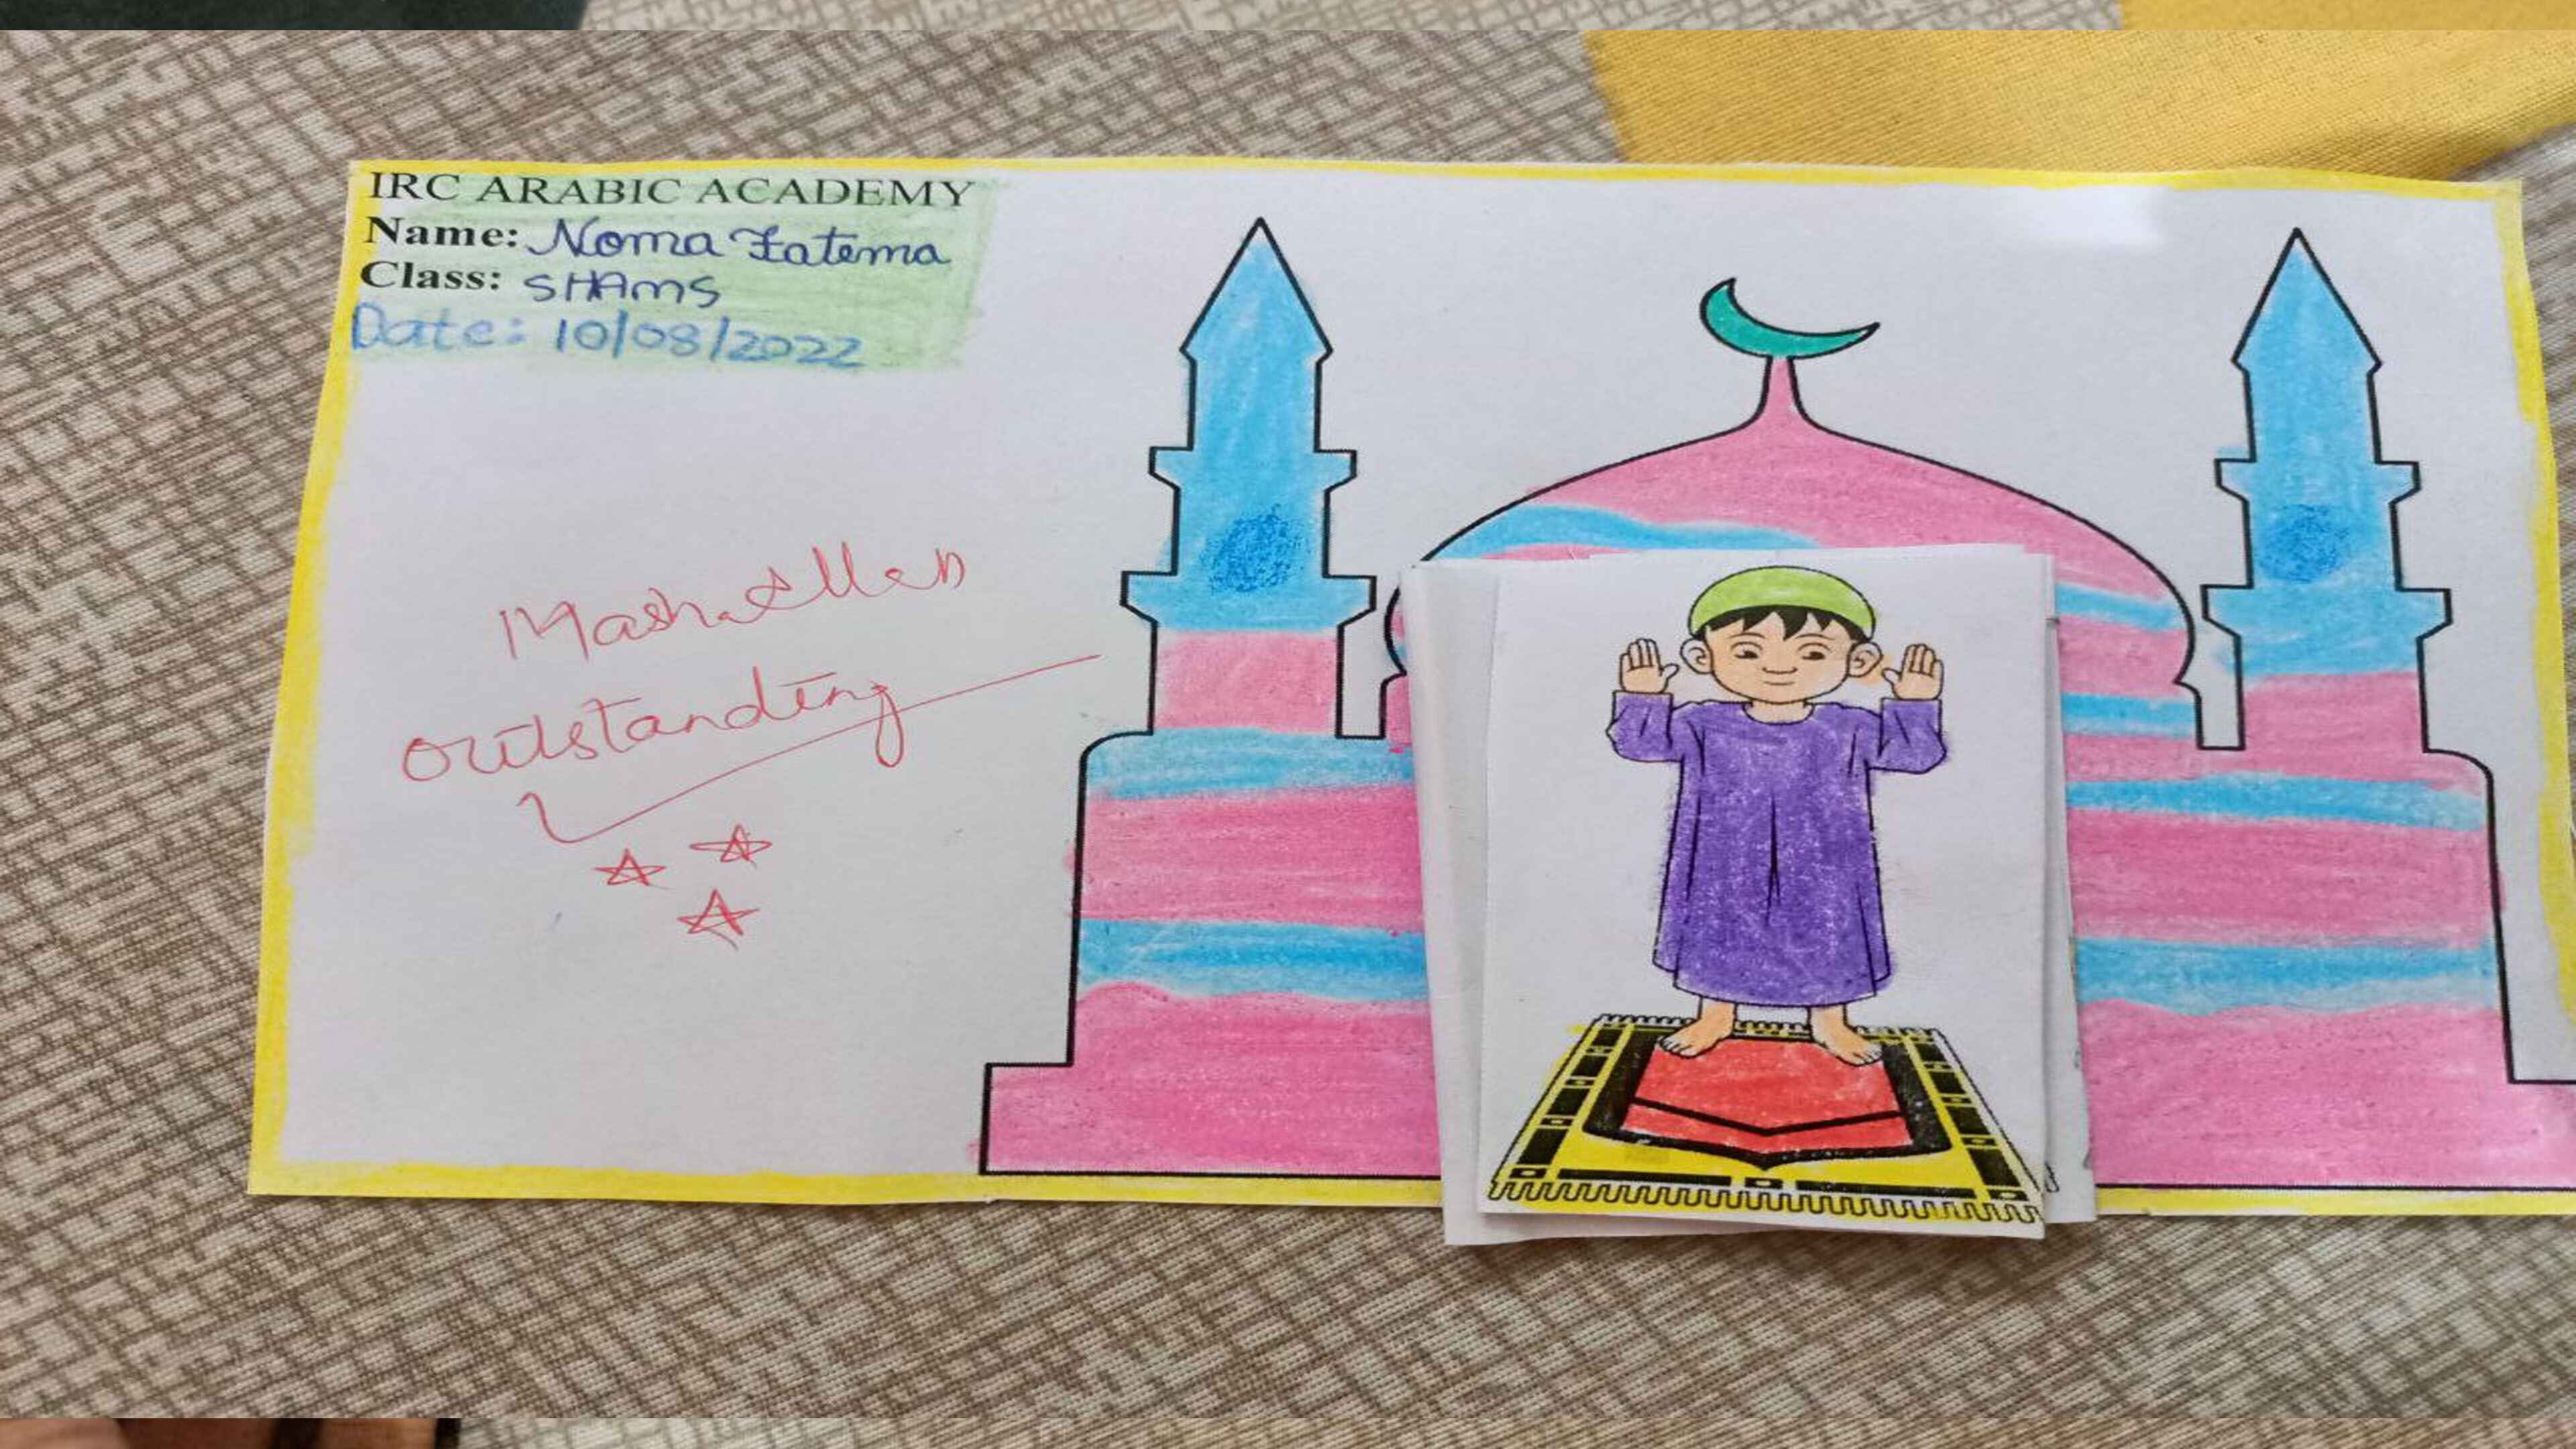 IRC ARABIC ACADEMY
Name: Noma Fatema
Class: SHAMS
Date: 10/08/2022
Mashallah
outstanding